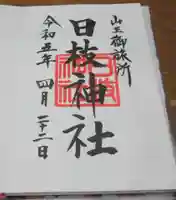 山王御旅所
日枝神社
令和五年四月二十二日